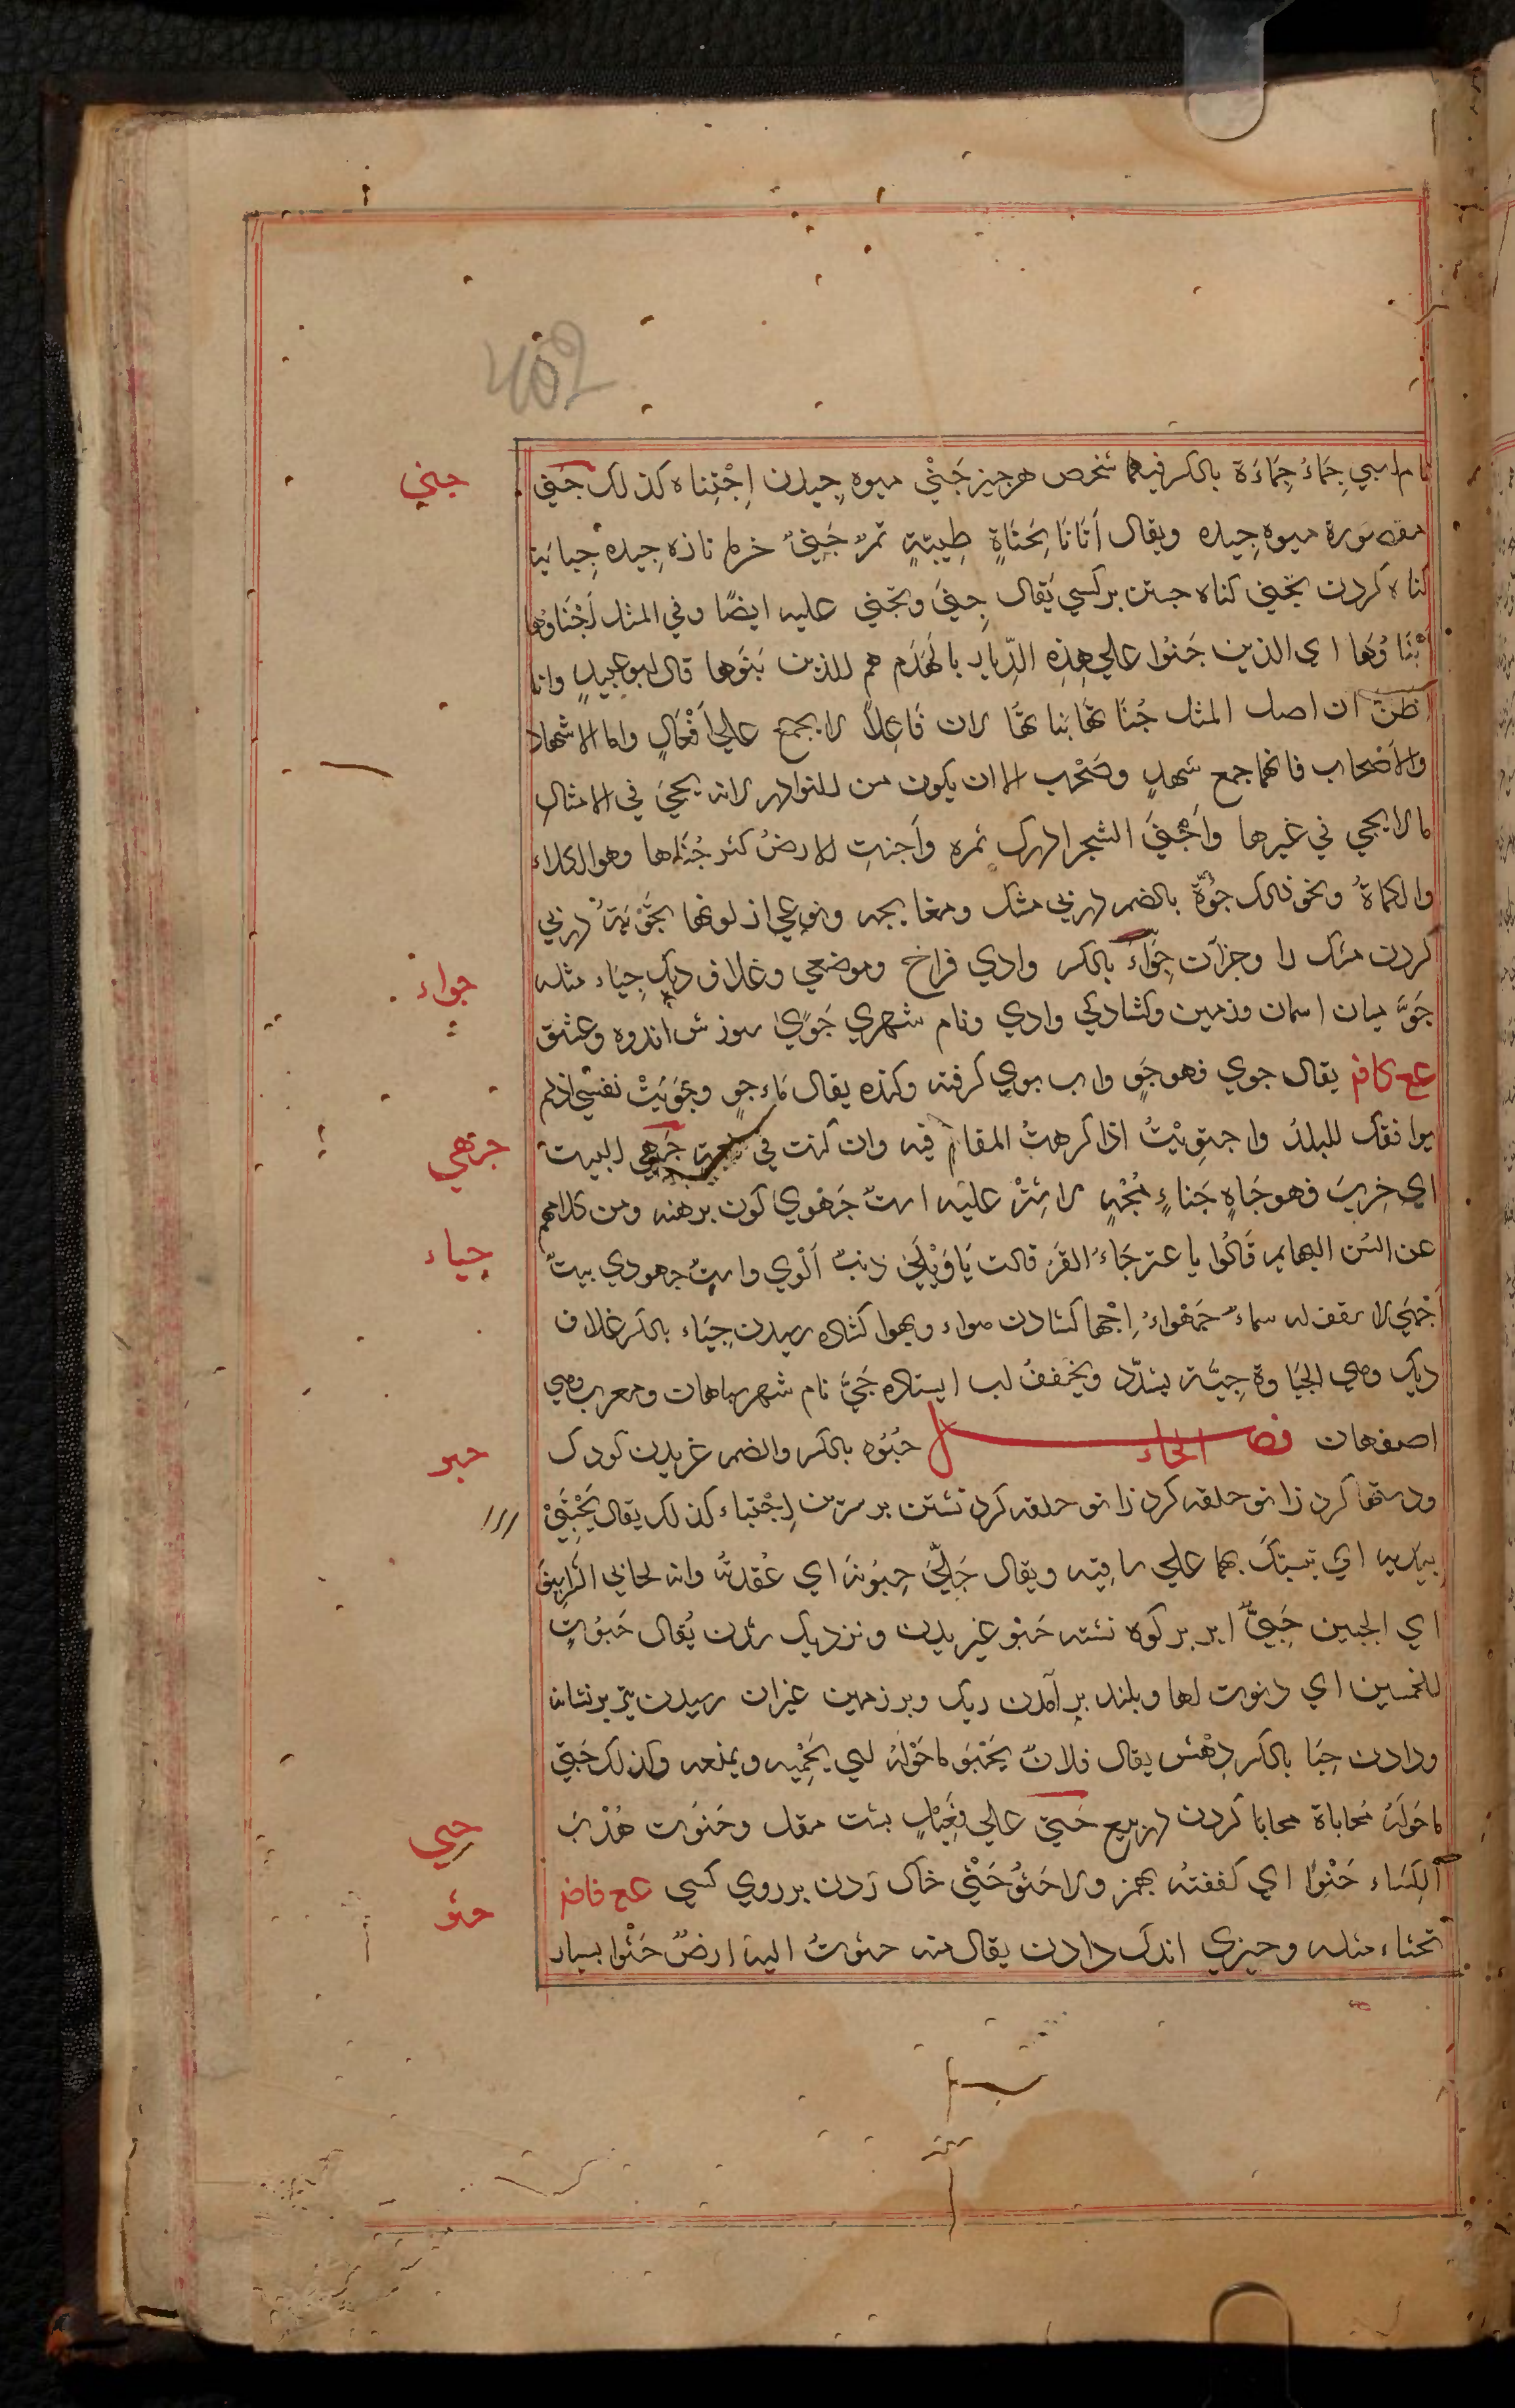 402
نام اسبي جِمَاءُ جِمَاءَة بالكسر فيهما شخص هر چيز جَنْيُ ميوه چيدن اِجْتِناء كذلك جَنَى
جني
مقصورة ميوه چيده ويقال أَتَانَا بِجَنَاةٍ طيبةٍ تمرٌ جَنِيٌّ خرما تازه چيده جِنايَة
كناه كردن تجني كناه جستن بر كسي يُقال جنَى وتجنى عليه ايضًا وفي المثل أَجْنَاؤُها
أَبْنَاؤُهَا اي الذين جَنَوْا على هذه الدِّيار بالهَدم هم الذين بَنَوْها قال ابو عبيدٍ وانا
اظنّ ان اصل المثل جُنَاتُهَا بُنَاتُهَا لان فَاعِلًا لا يجمع علي أَفْعَالٍ واما الاشهاد
والاصْحاب فانهما جمع شهدٍ وصَحْب الا ان يكون من النوادر لانه يجيء في الامثال
ما لا يجي في غيرها وأَجْنَى الشجر ادرك ثمره وأَجنتِ الارضُ كثر جَنَاها وهو الكلاء
والكماةُ ونحو ذلك جُوَّة بالضم درپي مشك ومغا بجه ونوعي از لونها تَجْوِيَةُ درپي
كردن مشك را وجزآن جِوَاءُ بالكسر وادي فراخ وموضعي وغلاف ديك جِيَاء مثله
جواء
جَوُّ ميان اسمان وزمين وكشادكي وادي ونام شهري جَوًى سوزش اندوه وعشق
عع كافم يقال جوي فهو جَوٍ واب بوي كرفته وكنده يقال مَاء جوٍ وجَوِيَتْ نفسي اذا لم
يوافقك البلدُ واجتويْتُ اذا كرهتُ المقام فيه وان كنت في نعمة جَهِيَ البيت
جزهي
اي خرِبَ فهو جَاهٍ جِنَاءٍ مُجْهٍ لا سِتْرَ عليه استٌ جَهْوَي كون برهنه ومن كلامهم
عن السُن البهايم قَالُوا يا عنز جَاءَ القَر قالت يَا وَيْلَي ذنبٌ اَلْوي واستٌ جهودي بيتٌ
جياء
أَجْهَى لا سقف له سماءٌ جَهْوَاءُ اِجْها كشادن هواء وبهوا كشاده رسيدن جِيَاء بالكسر غلاف
ديك وهي الجياوة جِيَّة يشدّد ويخفف اب ايستاده جَيّ نام شهر سپاهان ومعرب وهي
اصفهان فصل الحاء حُبُوه بالكسر والضم غريدن كودك
حبو
ودستها كرد زانو حلقه كرد زانو حلقه كرد نشتن بر سرين اِحْتِباء كذلك يقال يَحْتَبِيْ
بيديه اي تشبتك بهما علي ساقيه ويقال حَلَّ حِبْوَتَه اي عُقْدتَه وانه لحابي الشَّراسِف
اي الجبين حَبِيٌّ ابر بر كوه نشته حَبْو غيزيدن ونزديك شدن يُقال حَبَوْتُ
للخمسين اي دنوت لها وبلند بر آمدن ريك وبر زمين غيزان رسيدن تير بر نشانه
ودادن حِبَا بالكسر دِهْش يقال فلانٌ يَحْبُو ما حَوْلَهُ اي يَحْمِيه ويمنعه وكذلك حَبَّي
ما حَوْلَهُ مُحاباة محابا كردن در بيع حَتِيّ علي فَعِيْلٍ بست مقل وحَتَوت هُدْبَ
حبي
الكِسَاء حَتْوًا اي كففتُه بهمز ولا حَثْوُ حَثْيُ خاك زدن بر روي كسي عع فاضم
حثو
تحثاء مثله وچيزي اندك دادن يقال منه حثوتُ اليه ارضٌ حَثْوَا بسيار